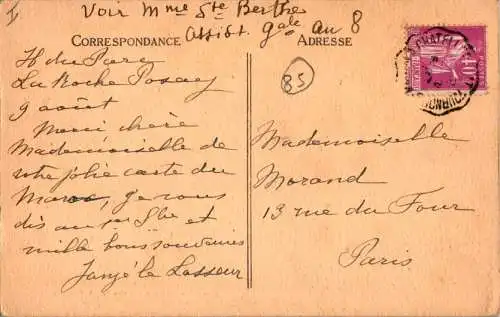 Voir Mme Ste Berthe
assist gale au 8
CORRESPONDANCE
ADRESSE
85
H. du Parc
La Roche Posay
9 août
Merci chère
Mademoiselle de
votre jolie carte du
Maroc, je vous
dis au 1er 8bre et
mille bons souvenirs
Mademoiselle
Morand
13 rue du Four
Paris